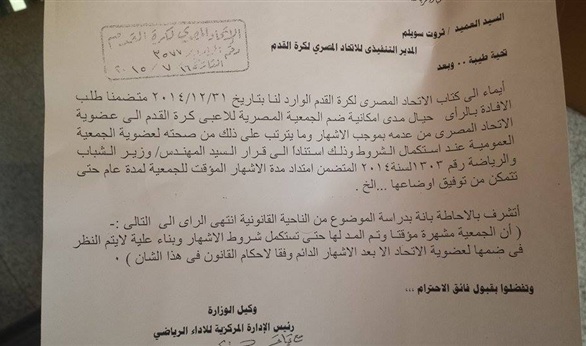 السيد العميد / ثروت سويلم
المدير التنفيذى للاتحاد المصري لكرة القدم
تحية طيبة .. وبعد
الإتحاد المصري لكرة القدم
٣٥٧٧
٢٠١٥/٧/١٦
أيماء الى كتاب الاتحاد المصرى لكرة القدم الوارد لنا بتاريخ ٢٠١٤/١٢/٣١ متضمنا طلب
الافادة بالرأى حيال مدى امكانية ضم الجمعية المصرية للاعبى كرة القدم الى عضوية
الاتحاد المصرى من عدمه بموجب الاشهار وما يترتب على ذلك من صحته لعضوية الجمعية
العمومية عند استكمال الشروط وذلك استناداً الى قرار السيد المهندس/ وزير الشباب
والرياضة رقم ١٣٠٣ لسنة ٢٠١٤ المتضمن امتداد مدة الاشهار المؤقت للجمعية لمدة عام حتى
تتمكن من توفيق اوضاعها ...الخ .
أتشرف بالاحاطة بانة بدراسة الموضوع من الناحية القانونية انتهى الراى الى التالى :-
( أن الجمعية مشهرة مؤقتا وتم المد لها حتى تستكمل شروط الاشهار وبناء علية لايتم النظر
فى ضمها لعضوية الاتحاد الا بعد الاشهار الدائم وفقا لاحكام القانون فى هذا الشان ) ٠
وتفضلوا بقبول فائق الاحترام ...
وكيل الوزارة
رئيس الإدارة المركزية للاداء الرياضي